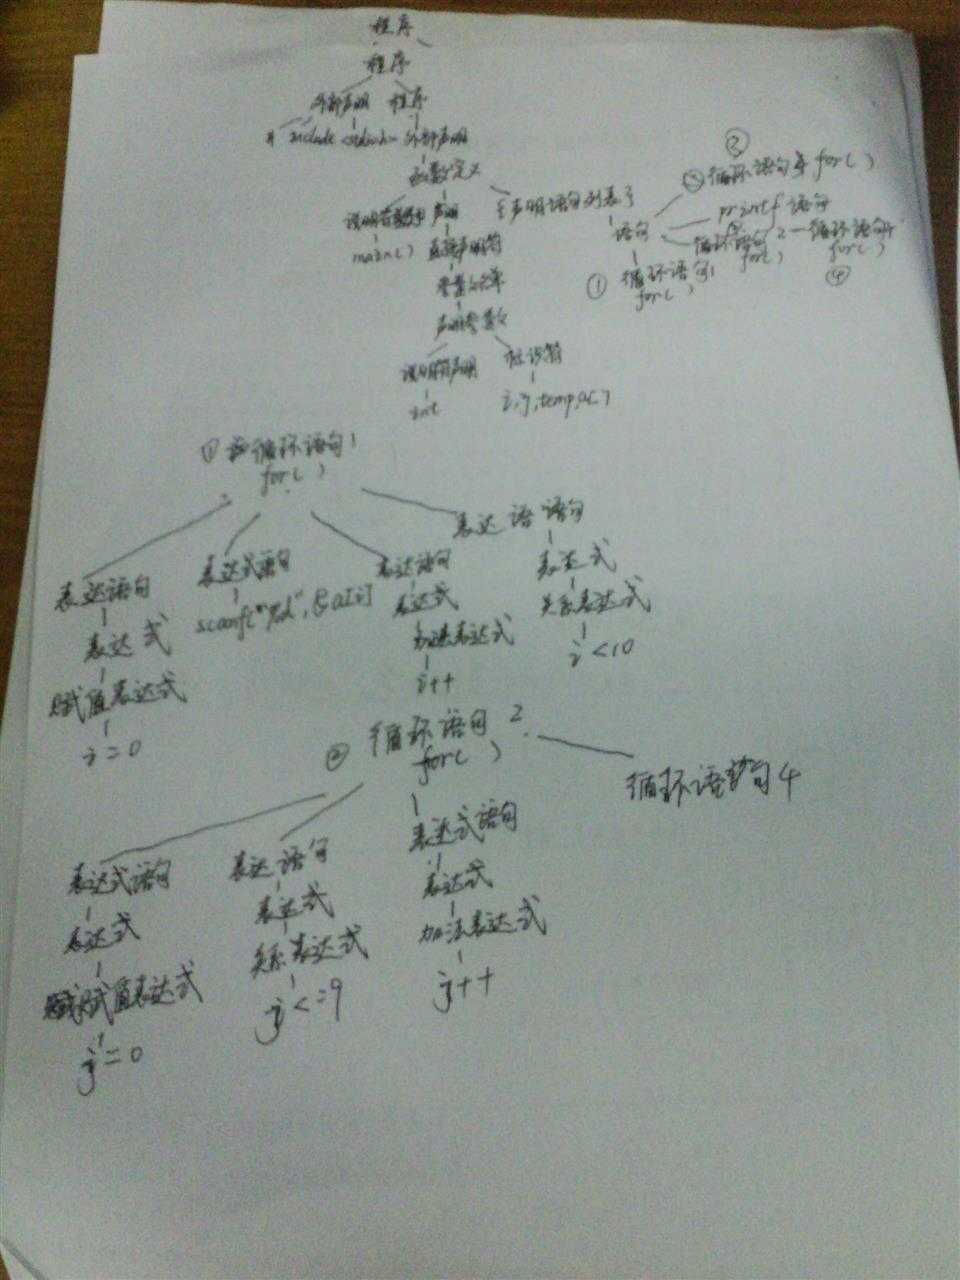 程序
程序
外部声明 程序
# include <stdio.h> 外部声明
函数定义
声明 {声明语句列表}
main() 直接声明符
语句
② 循环语句 for( )
printf语句
循环语句2 循环语句
for( ) for( )
④
① 循环语句1
for( )
参数
声明参数
说明符声明 标识符
int i,j,temp,a[ ]
① 循环语句1
for( )
表达语句 表达式语句 表达语句 表达语语句
表达式 scanf("%d",&a[i] 表达式 表达式
赋值表达式 加法表达式 关系表达式
i=0 i++ i<10
② 循环语句2
for( )
循环语句4
表达式语句 表达语句 表达式语句
表达式 表达式 表达式
赋值表达式 关系表达式 加法表达式
j=0 j<=9 j++